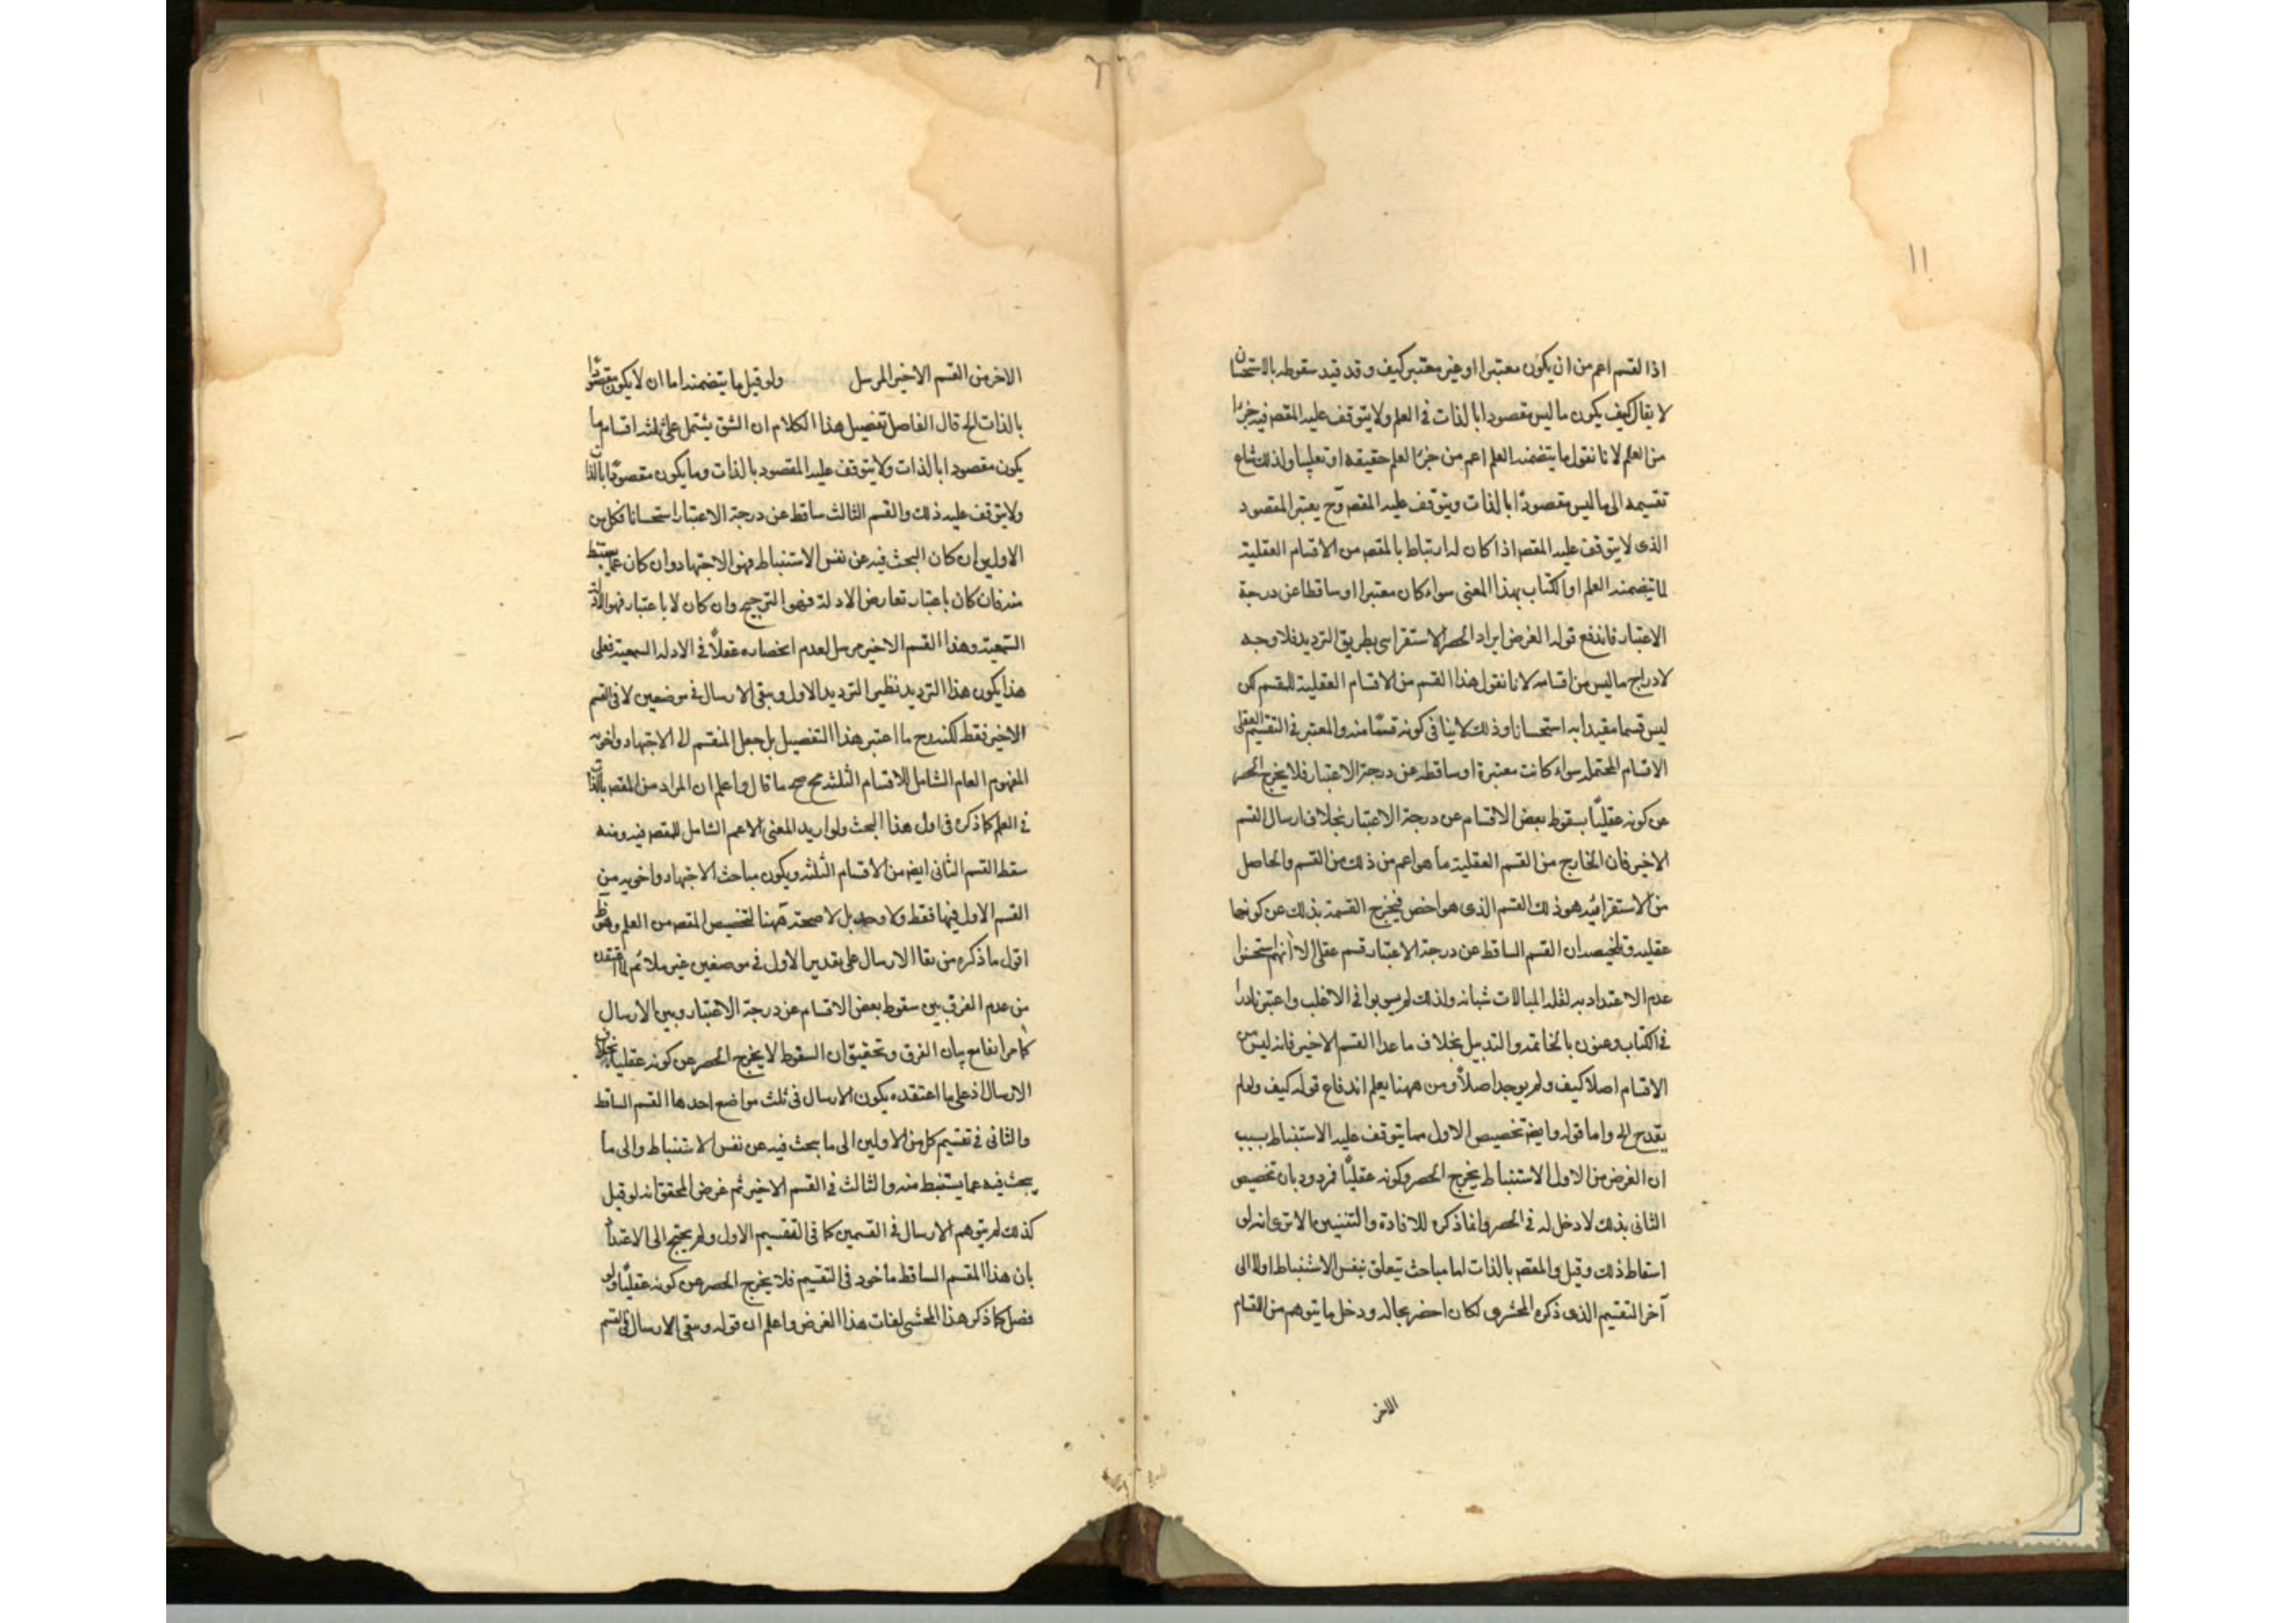 ١١
اذا لقسم اعم من ان يكون معتبرا او غير معتبر كيف و قد قيد سقوطه بالاستحسان
لا يقال كيف يكون ما ليس مقصودا بالذات فى العلم ولا يتوقف عليه المقصد فيه جزءا
من العلم لانا نقول ما يتضمنه العلم اعم من جزء العلم حقيقه او تعليبا ولذلك شاع
تقسيمه الى ما ليس مقصودا بالذات ويتوقف عليه المقصد وح يعتبر المقصود
الذى لا يتوقف عليه المقصد اذا كان له ارتباط بالمقصد من الاقسام العقلية
لما يتضمنه العلم او الكتاب بهذا المعنى سواء كان معتبرا او ساقطا عن درجة
الاعتبار فاندفع قوله الغرض ايراد الحصر الاستقرائى بطريق الترديد فلا وجه
لادراج ما ليس من اقسامه لانا نقول هذا القسم من الاقسام العقلية للمقسم لكن
ليس قسما مقيدا به استحسانا وذلك لا ينافى كونه قسما منه والمعتبر فى التقسيم العقلى
الاقسام المحتمله سواء كانت معتبرة او ساقطه عن درجة الاعتبار فلا يخرج الحصر
عن كونه عقليا بسقوط بعض الاقسام عن درجة الاعتبار بخلاف ارسال القسم
الاخير فان الخارج من القسم العقلية ما هو اعم من ذلك من القسم والحاصل
من الاستقرائيه هو ذلك القسم الذى هو اخص فيخرج القسمة بذلك عن كونها
عقليه وتلخيصه ان القسم الساقط عن درجة الاعتبار قسم عقلى الا انهم استحسنوا
عدم الاعتداد به لقله المبالات شبانه ولذلك لم يبوبوا فى الاغلب واعتبر نادرا
فى الكتاب وعنون بالخاتمه والتذييل بخلاف ما عدا القسم الاخير فانه ليس من
الاقسام اصلا كيف ولم يوجد اصلا ومن ههنا يعلم اندفاع قوله كيف ولعام
يقدح الخ واما قوله وايضا تخصيص الاول مما يتوقف عليه الاستنباط بسبب
ان الغرض من الاول الاستنباط يخرج الحصر وكونه عقليا فمردود بان تخصيص
الثانى بذلك لا دخل له فى الحصر وانما ذكره للافادة والتنبيه الا ترى انه لو
اسقاط ذلك وقيل والمقصد بالذات اما مباحث يتعلق بنفس الاستنباط او لا الى
آخر التقسيم الذى ذكره المحشى لكان احضر بحاله ودخل ما يتوهم من القسام
الاخر
الاخر من القسم الاخير المرسل ولو قيل ما يتضمنه اما ان لا يكون مقصودا
بالذات الخ قال الفاضل تفصيل هذا الكلام ان الشق يشتمل على ثلثه اقسام ما
يكون مقصودا بالذات ولا يتوقف عليه المقصود بالذات وما يكون مقصودا بالذات
ولا يتوقف عليه ذلك والقسم الثالث ساقط عن درجة الاعتبار استحسانا فكل من
الاولين ان كان البحث فيه عن نفس الاستنباط فهو الاجتهاد وان كان عما يستنبط
منه فان كان باعتبار تعارض الادلة فهو الترجيح وان كان لا باعتبار فهو الادلة
السمعية وهذا القسم الاخير مرسل لعدم انحصاره عقلا فى الادله السمعية فعلى
هذا يكون هذا الترديد نظير الترديد الاول ويبقى الارسال فى موضعين لا فى القسم
الاخير فقط لكنه ح ما اعتبر هذا التفصيل بل جعل المنقسم الى الاجتهاد واخويه
المفهوم العام الشامل للاقسام الثلثه صح ما قال واعلم ان المراد من المقصد بالذات
فى العلم كما ذكره فى اول هذا البحث ولو اريد المعنى الاعم الشامل للمقصد فيه ومنه
سقط القسم الثانى ايضا من الاقسام الثلثه ويكون مباحث الاجتهاد واخويه من
القسم الاول فيها فقط ولا وجه بل لا صحة ههنا لتخصيص المقصد من العلم وهو ظ
اقول ما ذكره من بقاء الارسال على تقدير الاول فى موضعين غير ملائم لما اعتقده
من عدم الفرق بين سقوط بعض الاقسام عن درجة الاعتبار وبين الارسال
كما مر انفا مع بيان الفرق وتحقيق ان السقوط لا يخرج الحصر عن كونه عقليا بخلاف
الارسال اذ على ما اعتقده يكون الارسال فى ثلث مواضع احدها القسم الساقط
والثانى فى تقسيم كل من الاولين الى ما يبحث فيه عن نفس الاستنباط والى ما
يبحث فيه عما يستنبط منه والثالث فى القسم الاخير ثم غرض المحقق انه لو قيل
كذلك لم يتوهم الارسال فى القسمين كما فى التقسيم الاول ولم يحتج الى الاعتذار
بان هذا القسم الساقط ماخوذ فى التقسيم فلا يخرج الحصر عن كونه عقليا ولو
فصل كما ذكر هذا المحشى لفات هذا الغرض واعلم ان قوله وبقى الارسال فى القسم